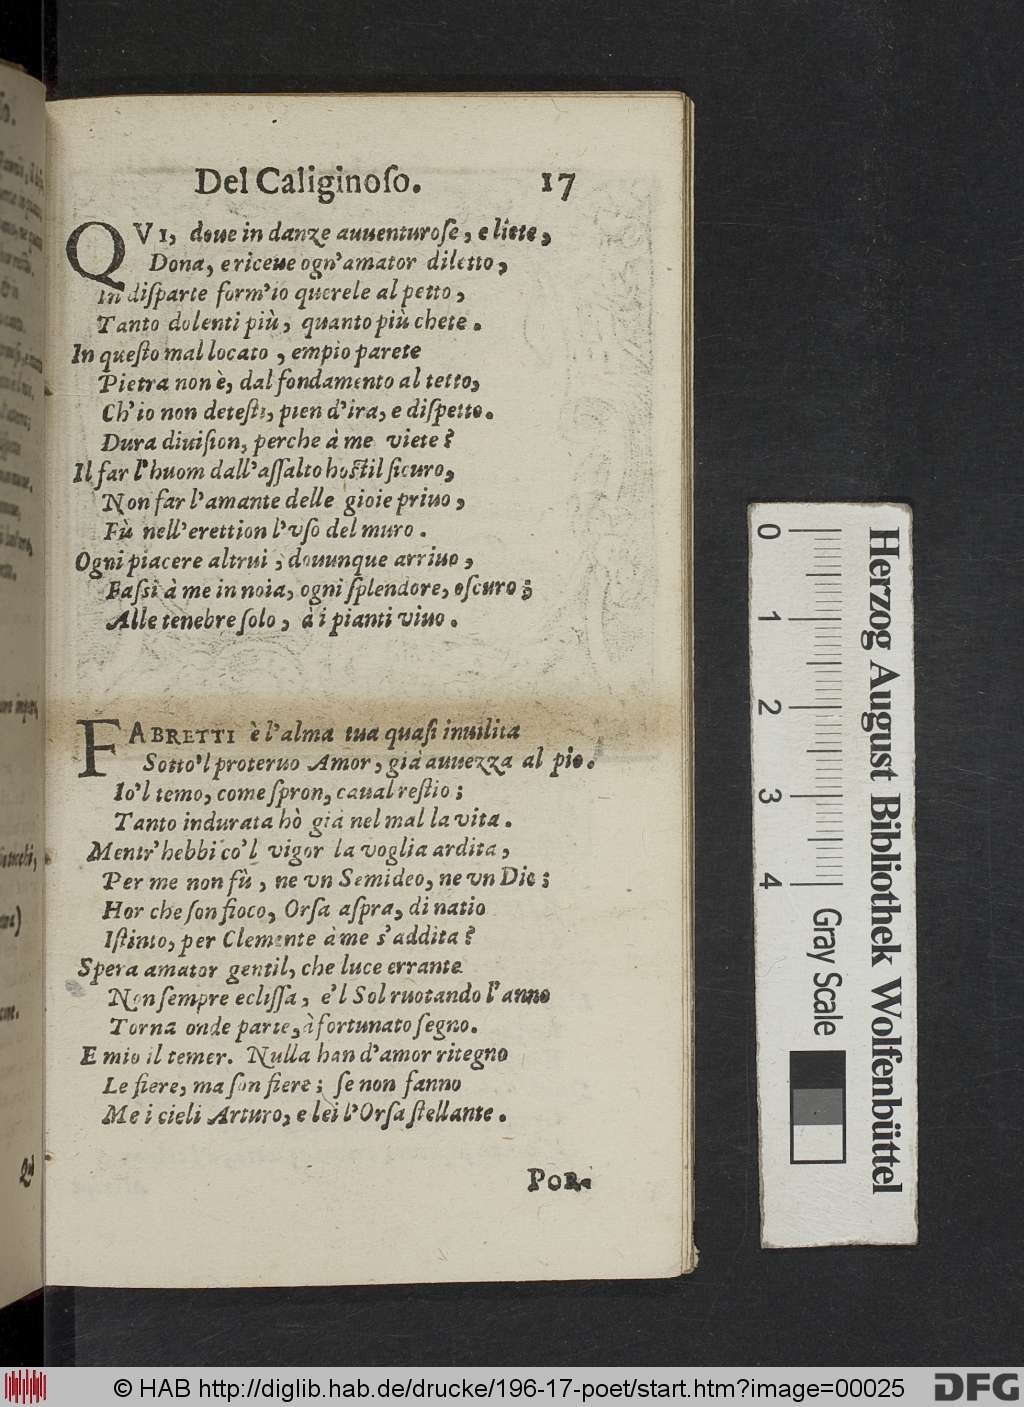 Del Caliginoſo. 17
QVI, doue in danze auuenturoſe, e liete,
Dona, e riceue ogn'amator diletto,
In diſparte form'io querele al petto,
Tanto dolenti più, quanto più chete.
In queſto mal locato, empio parete
Pietra non è, dal fondamento al tetto,
Ch'io non deteſti, pien d'ira, e diſpetto.
Dura diuiſion, perche à me viete?
Il far l'huom dall'aſſalto hostil ſicuro,
Non far l'amante delle gioie priuo,
Fù nell'erettion l'vſo del muro.
Ogni piacere altrui, douunque arriuo,
Faſsi à me in noia, ogni ſplendore, oſcuro;
Alle tenebre ſolo, à i pianti viuo.
FABRETTI è l'alma tua quaſi inuilita
Sotto'l proteruo Amor, già auuezza al pio.
Io'l temo, come ſpron, caual reſtio;
Tanto indurata hò già nel mal la vita.
Mentr'hebbi co'l vigor la voglia ardita,
Per me non fù, ne vn Semideo, ne vn Dio;
Hor che ſon fioco, Orſa aſpra, di natio
Iſtinto, per Clemente à me s'addita?
Spera amator gentil, che luce errante
Non ſempre ecliſſa, e'l Sol ruotando l'anno
Torna onde parte, à fortunato ſegno.
E mio il temer. Nulla han d'amor ritegno
Le fiere, ma ſon fiere; ſe non fanno
Me i cieli Arturo, e lei l'Orſa ſtellante.
POR-
0 1 2 3 4
Gray Scale
Herzog August Bibliothek Wolfenbüttel
© HAB http://diglib.hab.de/drucke/196-17-poet/start.htm?image=00025
DFG